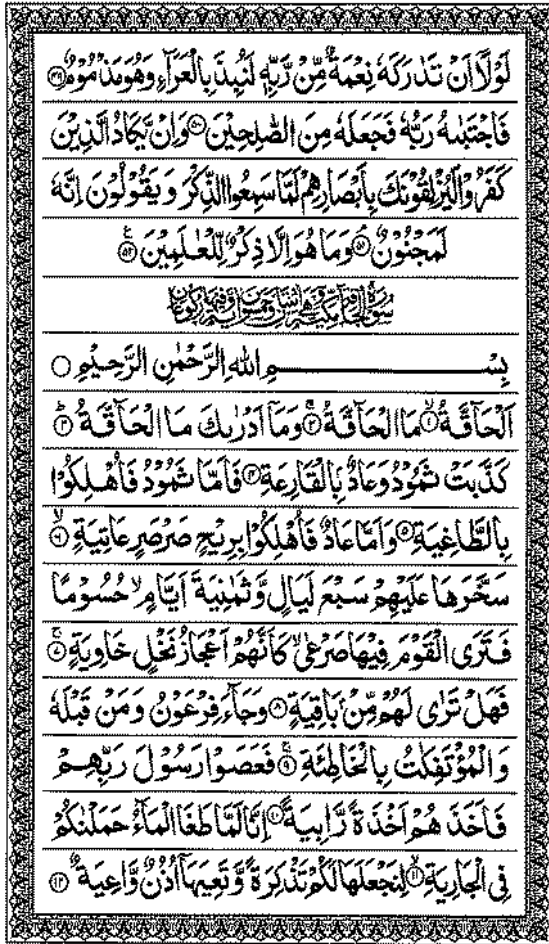 لَوْلَاۤ اَنْ تَدٰرَكَهٗ نِعْمَةٌ مِّنْ رَّبِّهٖ لَنُبِذَ بِالْعَرَآءِ وَهُوَ مَذْمُوْمٌ ۝۴۹
فَاجْتَبٰىهُ رَبُّهٗ فَجَعَلَهٗ مِنَ الصّٰلِحِيْنَ ۝۵۰ وَاِنْ يَّكَادُ الَّذِيْنَ
كَفَرُوْا لَيُزْلِقُوْنَكَ بِاَبْصَارِهِمْ لَمَّا سَمِعُوا الذِّكْرَ وَيَقُوْلُوْنَ اِنَّهٗ
لَمَجْنُوْنٌ ۝۵۱ وَمَا هُوَ اِلَّا ذِكْرٌ لِّلْعٰلَمِيْنَ ۝۵۲
سُوْرَةُ الْحَآقَّةِ مَكِّيَّةٌ
بِسْمِ اللهِ الرَّحْمٰنِ الرَّحِيْمِ ۝
اَلْحَآقَّةُ ۝۱ مَا الْحَآقَّةُ ۝۲ وَمَاۤ اَدْرٰىكَ مَا الْحَآقَّةُ ۝۳
كَذَّبَتْ ثَمُوْدُ وَعَادٌۢ بِالْقَارِعَةِ ۝۴ فَاَمَّا ثَمُوْدُ فَاُهْلِكُوْا
بِالطَّاغِيَةِ ۝۵ وَاَمَّا عَادٌ فَاُهْلِكُوْا بِرِيْحٍ صَرْصَرٍ عَاتِيَةٍ ۝۶
سَخَّرَهَا عَلَيْهِمْ سَبْعَ لَيَالٍ وَّثَمٰنِيَةَ اَيَّامٍ حُسُوْمًا
فَتَرَى الْقَوْمَ فِيْهَا صَرْعٰى كَاَنَّهُمْ اَعْجَازُ نَخْلٍ خَاوِيَةٍ ۝۷
فَهَلْ تَرٰى لَهُمْ مِّنْۢ بَاقِيَةٍ ۝۸ وَجَآءَ فِرْعَوْنُ وَمَنْ قَبْلَهٗ
وَالْمُؤْتَفِكٰتُ بِالْخَاطِئَةِ ۝۹ فَعَصَوْا رَسُوْلَ رَبِّهِمْ
فَاَخَذَهُمْ اَخْذَةً رَّابِيَةً ۝۱۰ اِنَّا لَمَّا طَغَا الْمَآءُ حَمَلْنٰكُمْ
فِى الْجَارِيَةِ ۝۱۱ لِنَجْعَلَهَا لَكُمْ تَذْكِرَةً وَّتَعِيَهَاۤ اُذُنٌ وَّاعِيَةٌ ۝۱۲